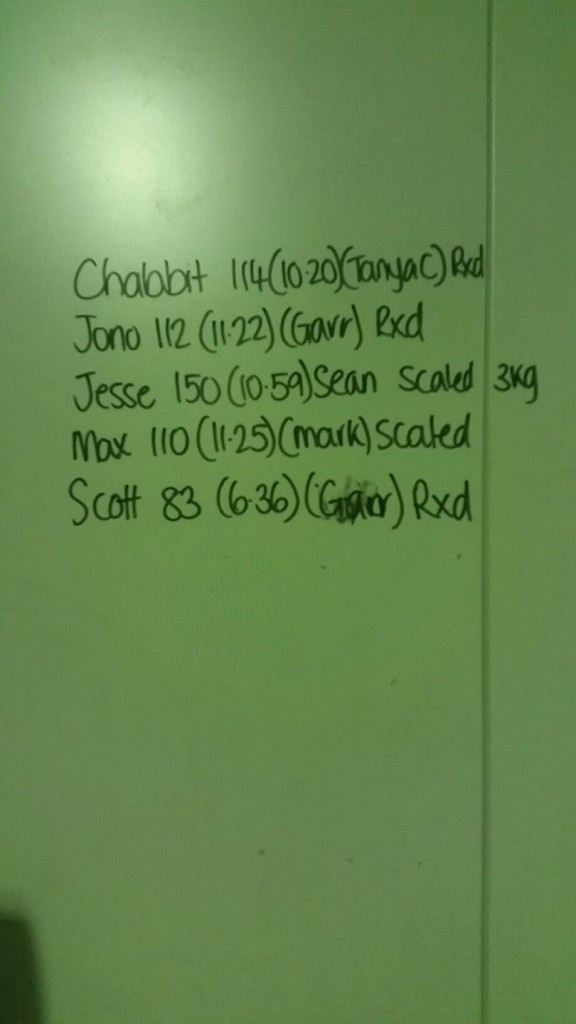 Chalabit 114 (10.20) (Tanya C) Rxd
Jono 112 (11.22) (Garr) Rxd
Jesse 150 (10.59) Sean scaled 3kg
Max 110 (11.25) (mark) scaled
Scott 83 (6.36) (Garr) Rxd